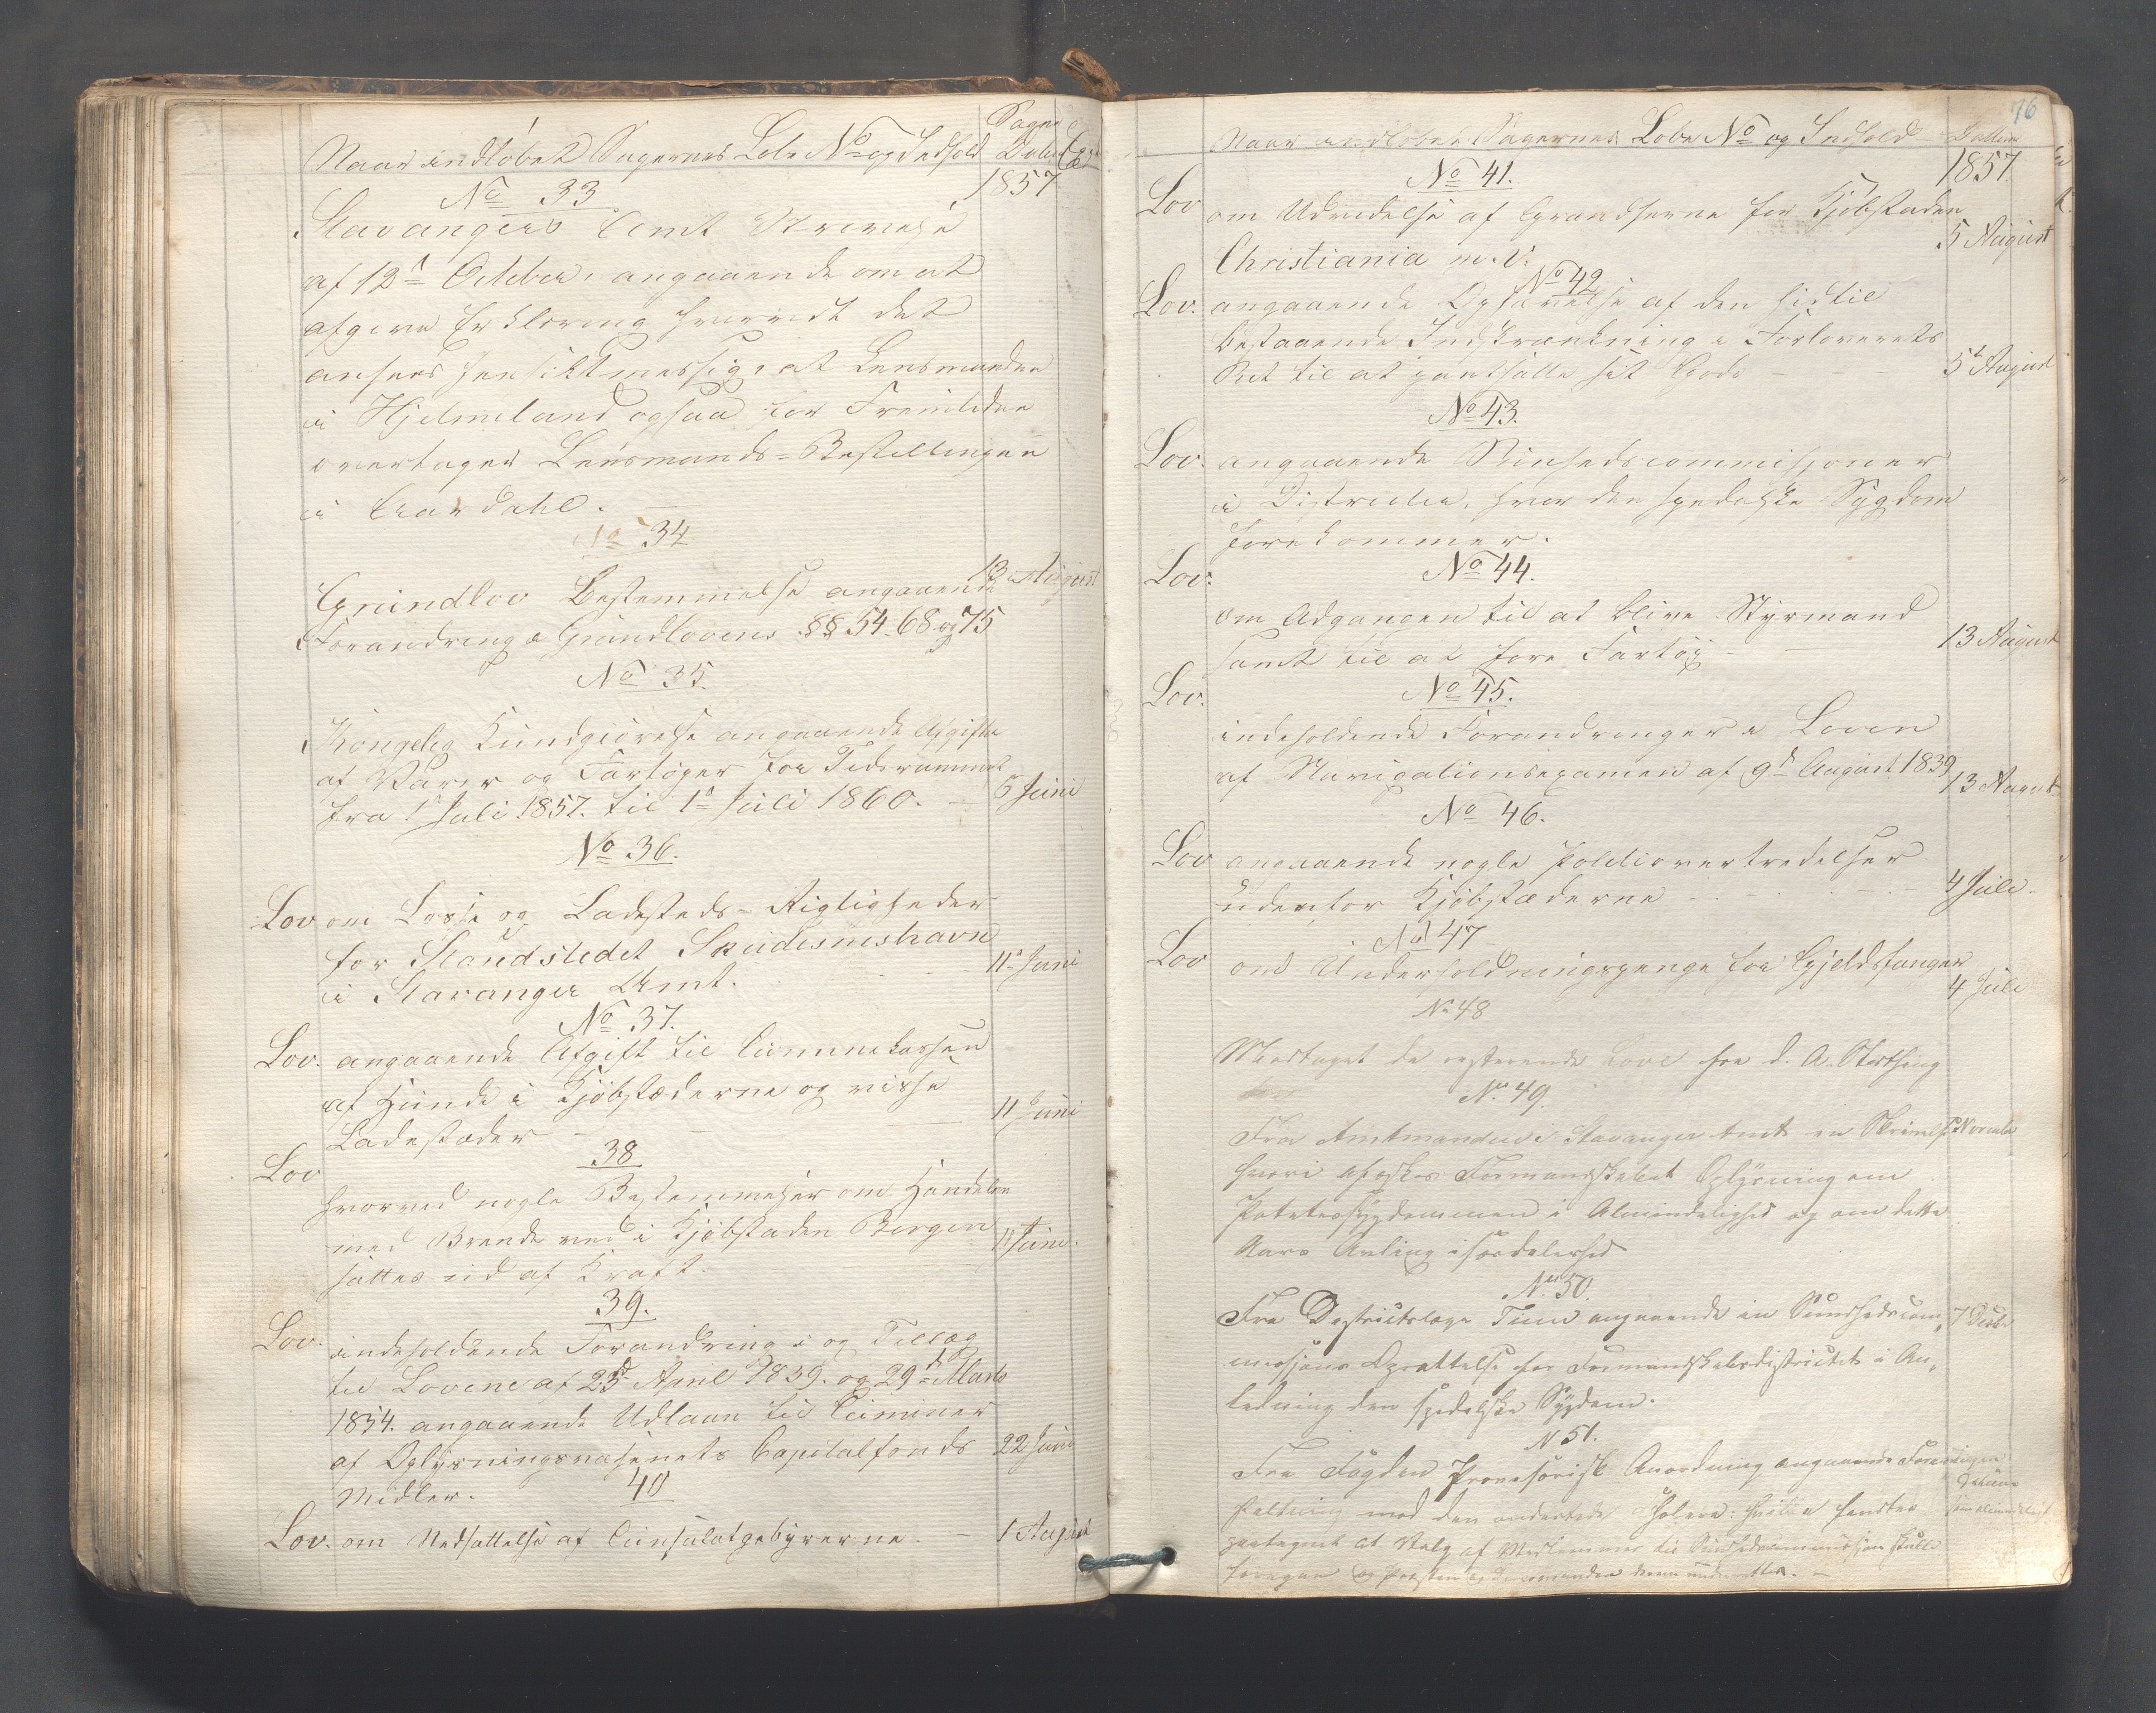 Naar indløbet Sagernes Lobe No og Indhold
Sagens
Datum
1857
No 33
Stavangers Amt Skrivelse
af 12te October, angaaende om at
afgive Erklæring hvorvidt det
ansees hensiktmessig, at Lensmanden
i Hjelmeland ogsaa for Fremtiden
overtager Lensmands-Bestillingen
i Aardahl.
No 34
Grundlov Bestemmelse angaaende 13 August
Forandring i Grundlovens §§ 54. 68 og 75
No 35.
Kongelig Kundgiørelse angaaende Afgifte
af Varer og Fartøger for Tidsrummet
fra 1ste Juli 1857. til 1ste Juli 1860. 5 Juni
No 36.
Lov om Losse og Ladesteds-Rigtigheder
for Strandstedet Skudesneshavn
i Stavanger Amt. 11te Juni
No 37.
Lov. angaaende Afgift til Communekassen
af Hunde i Kjøbstæderne og visse
Ladestæder 11 Juni
38
Lov
hvorved nogle Bestemmelser om Handelen
med Brende ved i Kjøbstaden Bergen
sættes ud af Kraft. 11 Juni.
39.
Lov. indeholdende Forandring i og Tillæg
til Lovene af 25de April 1839. og 29de Marts
1854. angaaende Udlaan til Communer
af Oplysningsvæsenets Capitalfonds 22 Juni
Midler.
40
Lov. om Nedsættelse af Consulatgebyrerne. 1 August
76
Naar indløbet Sagernes Lobe No og Indhold Datum
1857
No 41.
Lov om Udvidelse af Grændserne for Kjøbstaden
Christiania m.v. 5 August
No 42
Lov. angaaende Ophævelse af den hidtil
bestaaende Indskrænkning i Forloverets
Ret til at pantsætte sit Gods 5te August
No 43.
Lov. angaaende Sunhedscommisjoner
i Districter, hvor den spedalske Sygdom
forekommer.
No 44.
Lov:
om Adgangen til at blive Styrmand
samt til at føre Fartøy 13 August
No 45.
Lov.
indeholdende Forandringer i Loven
af Navigationsexamen af 9de August 1839 13 August
No 46.
Lov angaaende nogle Politiovertredelser
udenfor Kjøbstæderne 4 Juli
No 47
Lov om Underholdningspenge for Gjeldsfanger
4 Juli
No 48
Modtaget de resterende Love fra d. A. Storthing
No 49.
Fra Amtmanden i Stavanger Amt en Skrivelse November
hvori afæskes Formandskabet Oplysning om
Potetessygdommen i Almindelighed og om dette
Aars Avling isærdeleshed
No 50.
Fra Districtslæge Tiim angaaende en Sundhedscom- 7 Decbr
missjons Oprettelse for Formandskabsdistrictet i An-
ledning den spedalske Sygdom.
N 51.
Fra Fogden Provisorisk Anordning angaaende
med den
at Valg af Medlemmer til Sundhedscommissjon skulle
foregaae og Præsten og